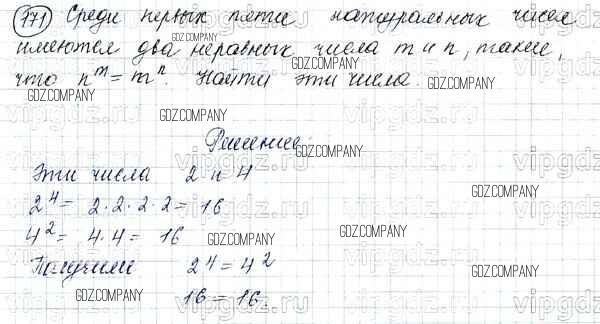 771 Среди первых пяти натуральных чисел
имеются два неравных числа m и n, такие,
что n^m = m^n. Найти эти числа.
Решение:
Эти числа 2 и 4
2^4 = 2·2·2·2 = 16
4^2 = 4·4 = 16
Получили 2^4 = 4^2
16 = 16.
GDZ.COMPANY
GDZ.COMPANY
GDZ.COMPANY
GDZ.COMPANY
GDZ.COMPANY
GDZ.COMPANY
GDZ.COMPANY
GDZ.COMPANY
GDZ.COMPANY
GDZ.COMPANY
GDZ.COMPANY
vipgdz.ru